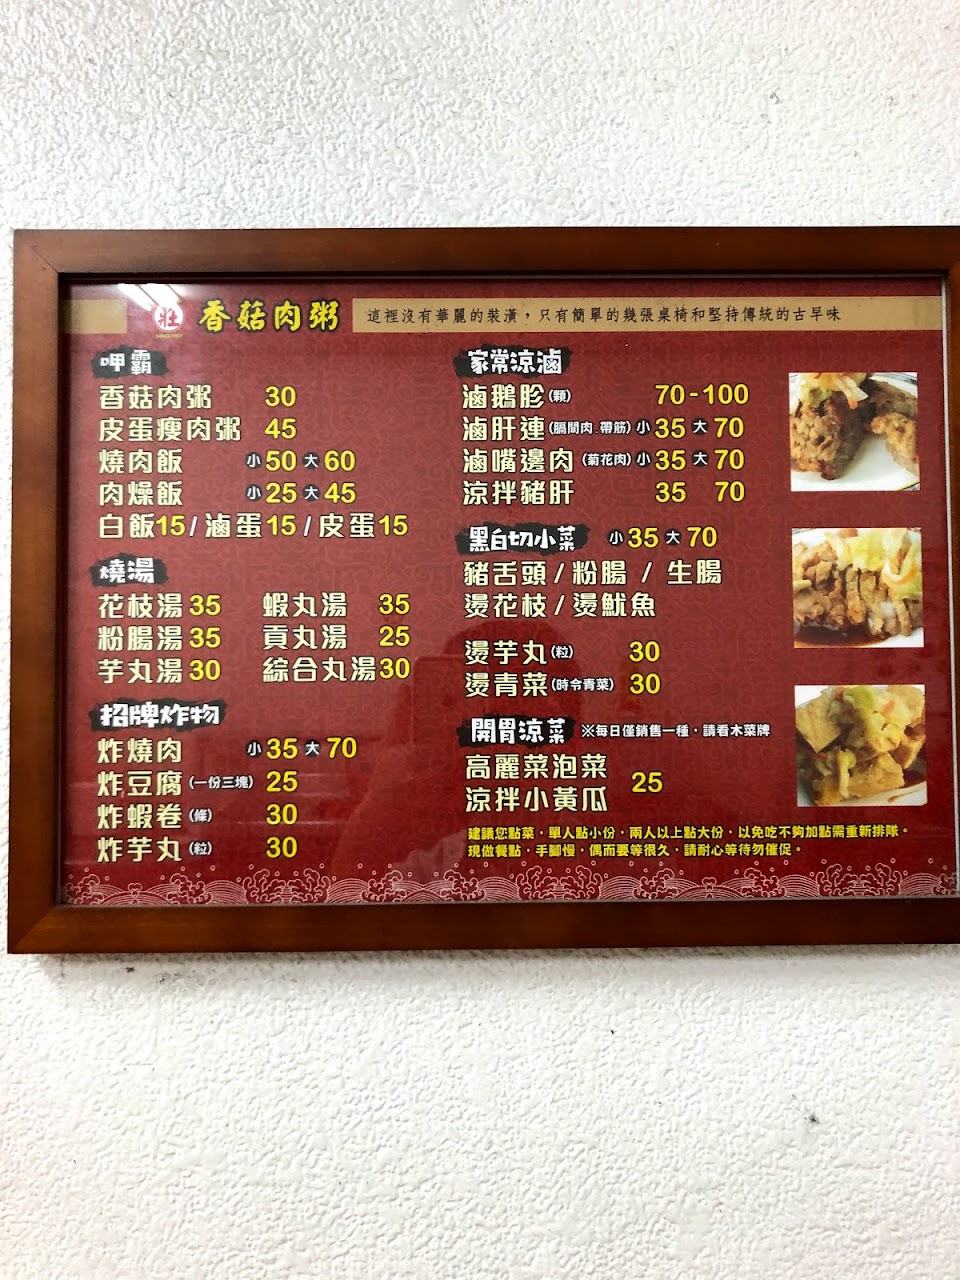 壯 香菇肉粥 這裡沒有華麗的裝潢,只有簡單的幾張桌椅和堅持傳統的古早味
呷霸
香菇肉粥 30
皮蛋瘦肉粥 45
燒肉飯 小50 大60
肉燥飯 小25 大45
白飯15/滷蛋15/皮蛋15
燒湯
花枝湯35 蝦丸湯 35
粉腸湯35 貢丸湯 25
芋丸湯30 綜合丸湯30
招牌炸物
炸燒肉 小35 大70
炸豆腐(一份三塊) 25
炸蝦卷(條) 30
炸芋丸(粒) 30
家常涼滷
滷鵝胗(顆) 70-100
滷肝連(膈間肉.帶筋)小35 大70
滷嘴邊肉(菊花肉)小35 大70
涼拌豬肝 35 70
黑白切小菜 小35 大70
豬舌頭/粉腸 / 生腸
燙花枝/燙魷魚
燙芋丸(粒) 30
燙青菜(時令青菜) 30
開胃涼菜 ※每日僅銷售一種,請看木菜牌
高麗菜泡菜
涼拌小黃瓜 25
建議您點菜,單人點小份,兩人以上點大份,以免吃不夠加點需重新排隊。
現做餐點,手腳慢,偶而要等很久,請耐心等待勿催促。